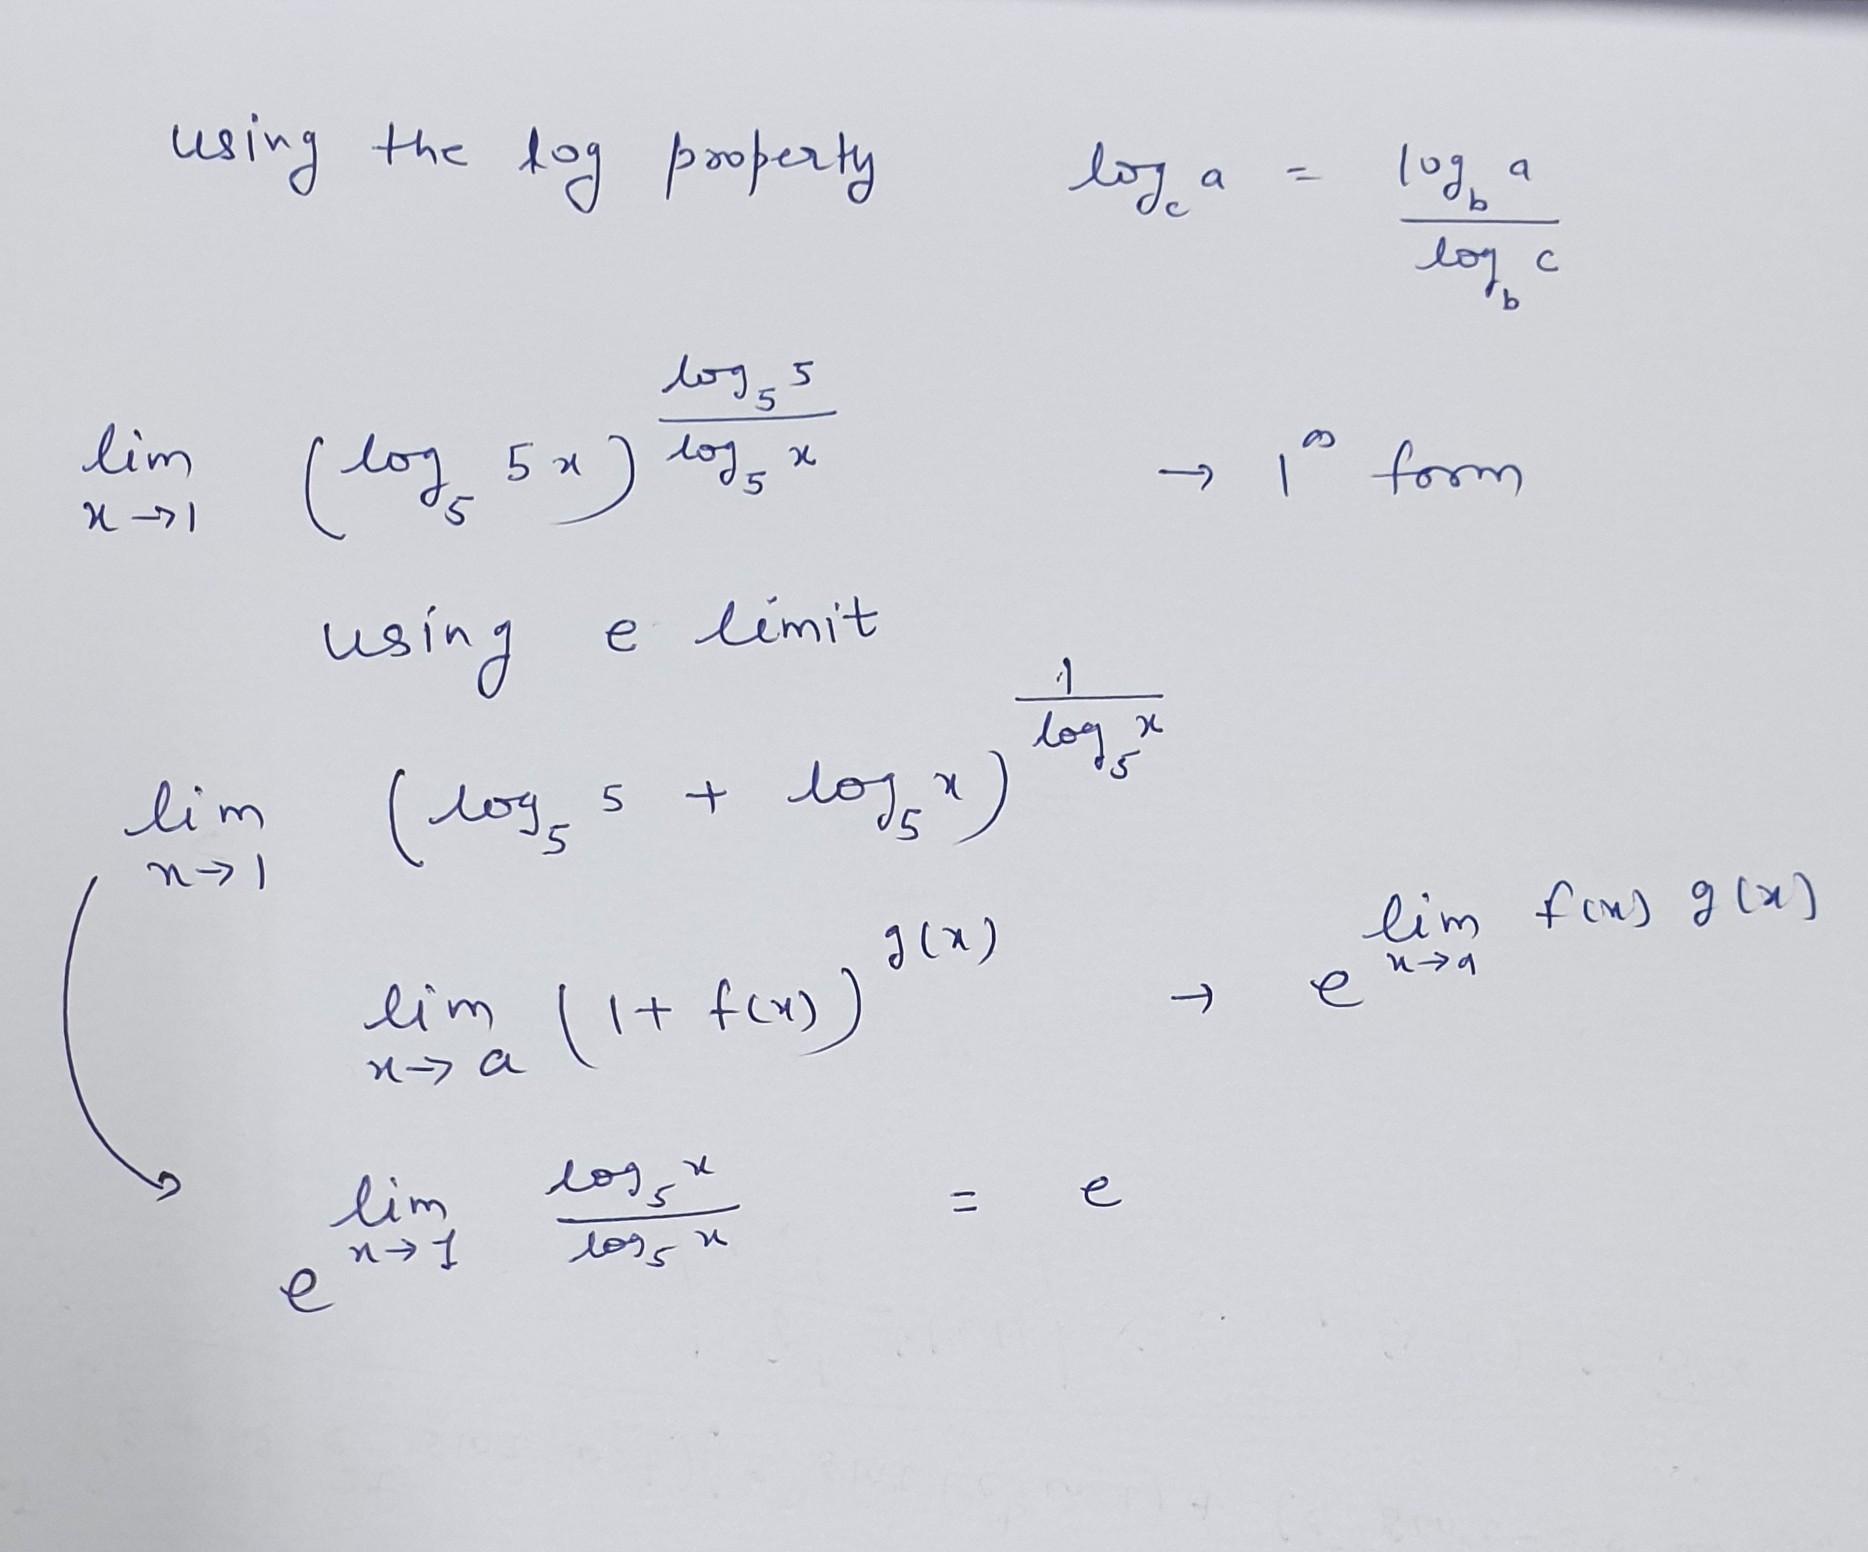 using the log property log_c a = log_b a / log_b c
lim x→1 (log_5 5x)^(log_5 5 / log_5 x) → 1^∞ form
using e limit
lim x→1 (log_5 5 + log_5 x)^(1 / log_5 x)
lim x→a (1 + f(x))^g(x) → e^(lim x→a f(x) g(x))
e^(lim x→1 log_5 x / log_5 x) = e